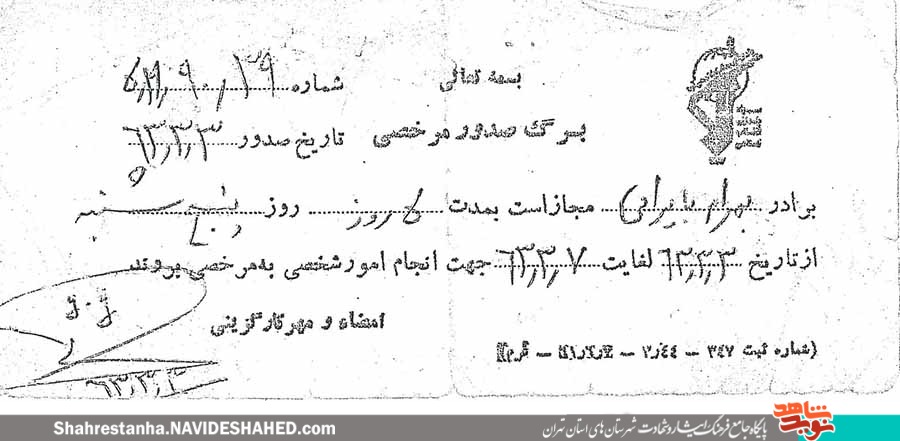 بسمه تعالی
شماره
برگ صدور مرخصی
تاریخ صدور ۶۳٫۳٫۳
برادر بهرام بایرامی مجاز است بمدت ۵ روز روز پنج شنبه
از تاریخ ۶۳٫۳٫۳ لغایت ۶۳٫۳٫۷ جهت انجام امور شخصی به مرخصی بروند
امضاء و مهر کارگزینی
۶۳٫۳٫۳
(شماره ثبت ۳۴۷ – ۲٫۴۴ –
نوید شاهد
پایگاه جامع فرهنگ ایثار و شهادت شهرستان های استان تهران
Shahrestanha.NAVIDESHAHED.com